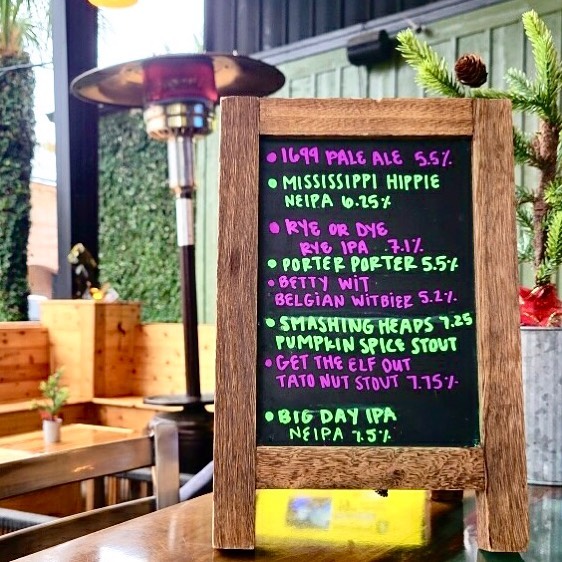 • 1699 PALE ALE 5.5%
• MISSISSIPPI HIPPIE
NEIPA 6.25%
• RYE OR DYE
RYE IPA 7.1%
• PORTER PORTER 5.5%
• BETTY WIT
BELGIAN WITBIER 5.2%
• SMASHING HEADS 7.25
PUMPKIN SPICE STOUT
• GET THE ELF OUT
TATO NUT STOUT 7.75%
• BIG DAY IPA
NEIPA 7.5%